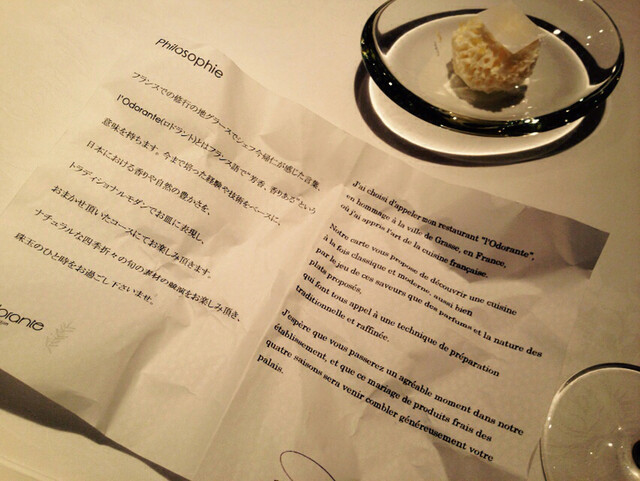 Philosophie
フランスでの修行の地グラースでシェフ今帰仁が感じた言葉、
l'Odorante(ロドラント)とはフランス語で"芳香、香りある"という
意味を持ちます。今まで培った経験や技術をベースに、
日本における香りや自然の豊かさを、
トラディショナルモダンでお皿に表現し、
おまかせ頂いたコースにてお楽しみ頂きます。
ナチュラルな四季折々の旬の素材の競演をお楽しみ頂き、
珠玉のひと時をお過ごし下さいませ。
J'ai choisi d'appeler mon restaurant "l'Odorante",
en hommage à la ville de Grasse, en France,
où j'ai appris l'art de la cuisine française.
Notre carte vous propose de découvrir une cuisine
à la fois classique et moderne, aussi bien
par le jeu de ces saveurs que des parfums et la nature des
plats proposés,
qui font tous appel à une technique de préparation
traditionnelle et raffinée.
J'espère que vous passerez un agréable moment dans notre
établissement, et que ce mariage de produits frais des
quatre saisons sera venir combler généreusement votre
palais.